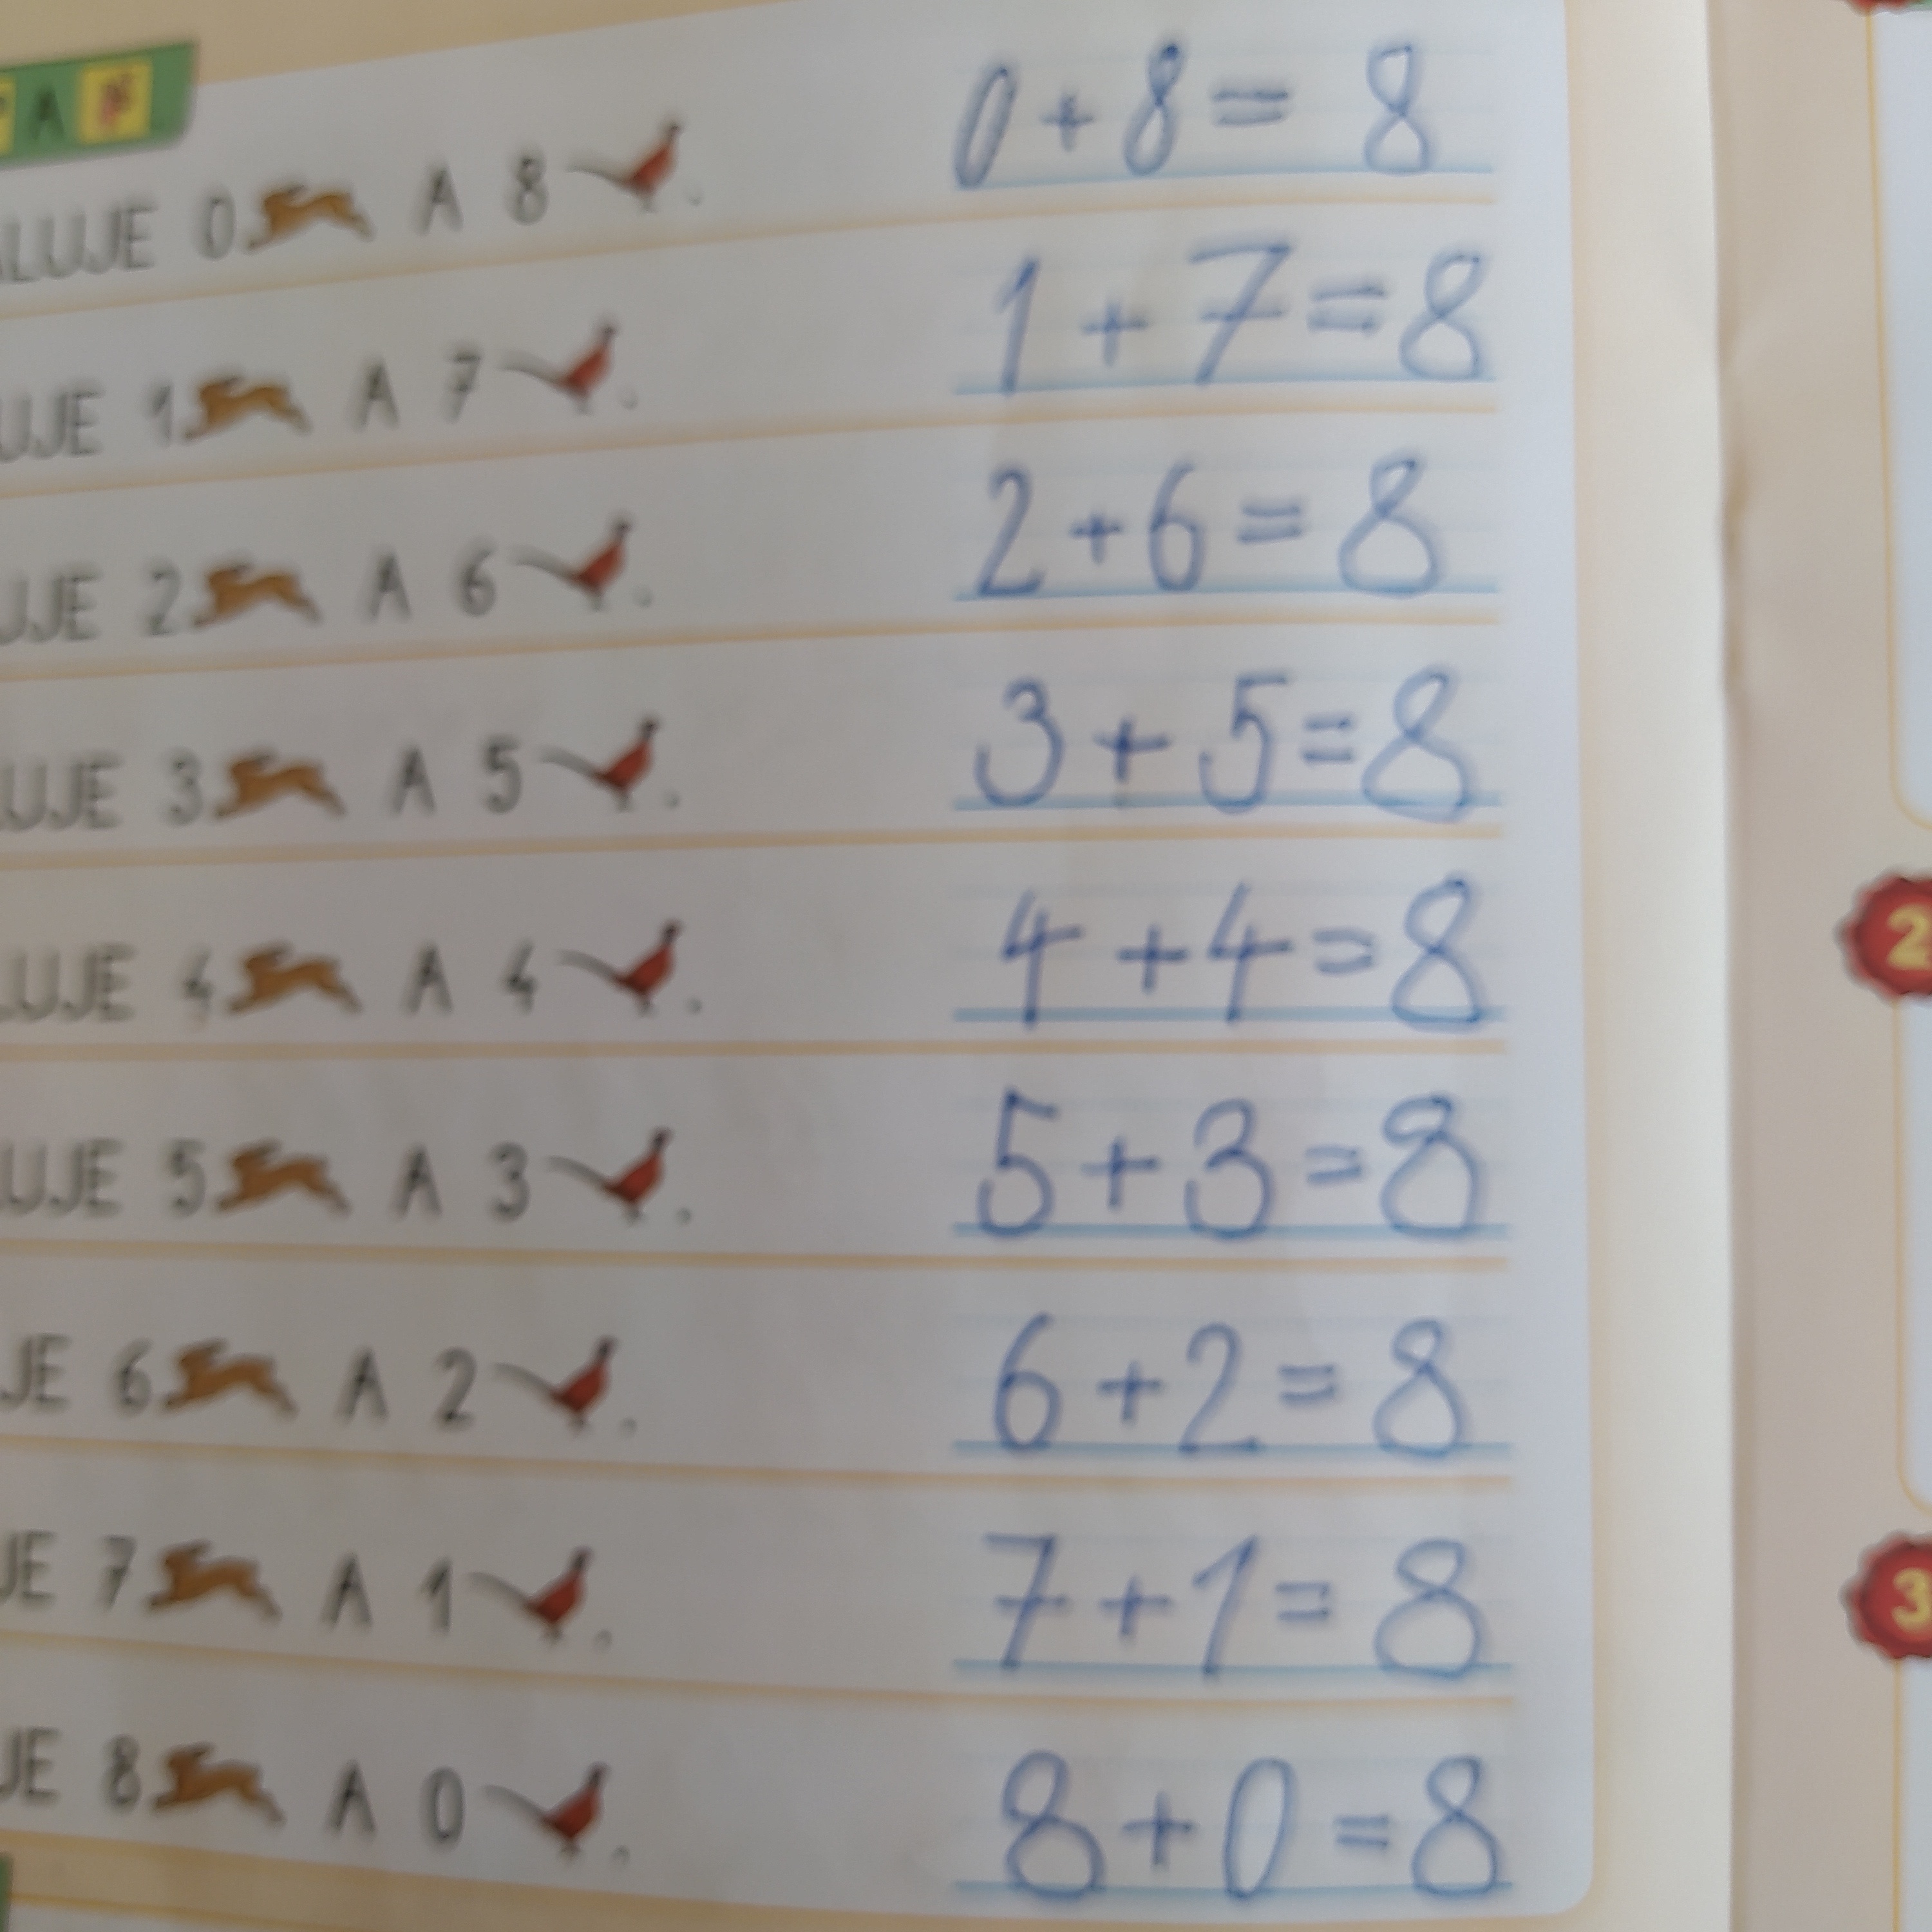 A
LUJE 0 A 8. 0 + 8 = 8
UJE 1 A 7. 1 + 7 = 8
UJE 2 A 6. 2 + 6 = 8
UJE 3 A 5. 3 + 5 = 8
LUJE 4 A 4. 4 + 4 = 8
UJE 5 A 3. 5 + 3 = 8
JE 6 A 2. 6 + 2 = 8
JE 7 A 1. 7 + 1 = 8
JE 8 A 0. 8 + 0 = 8
2
3